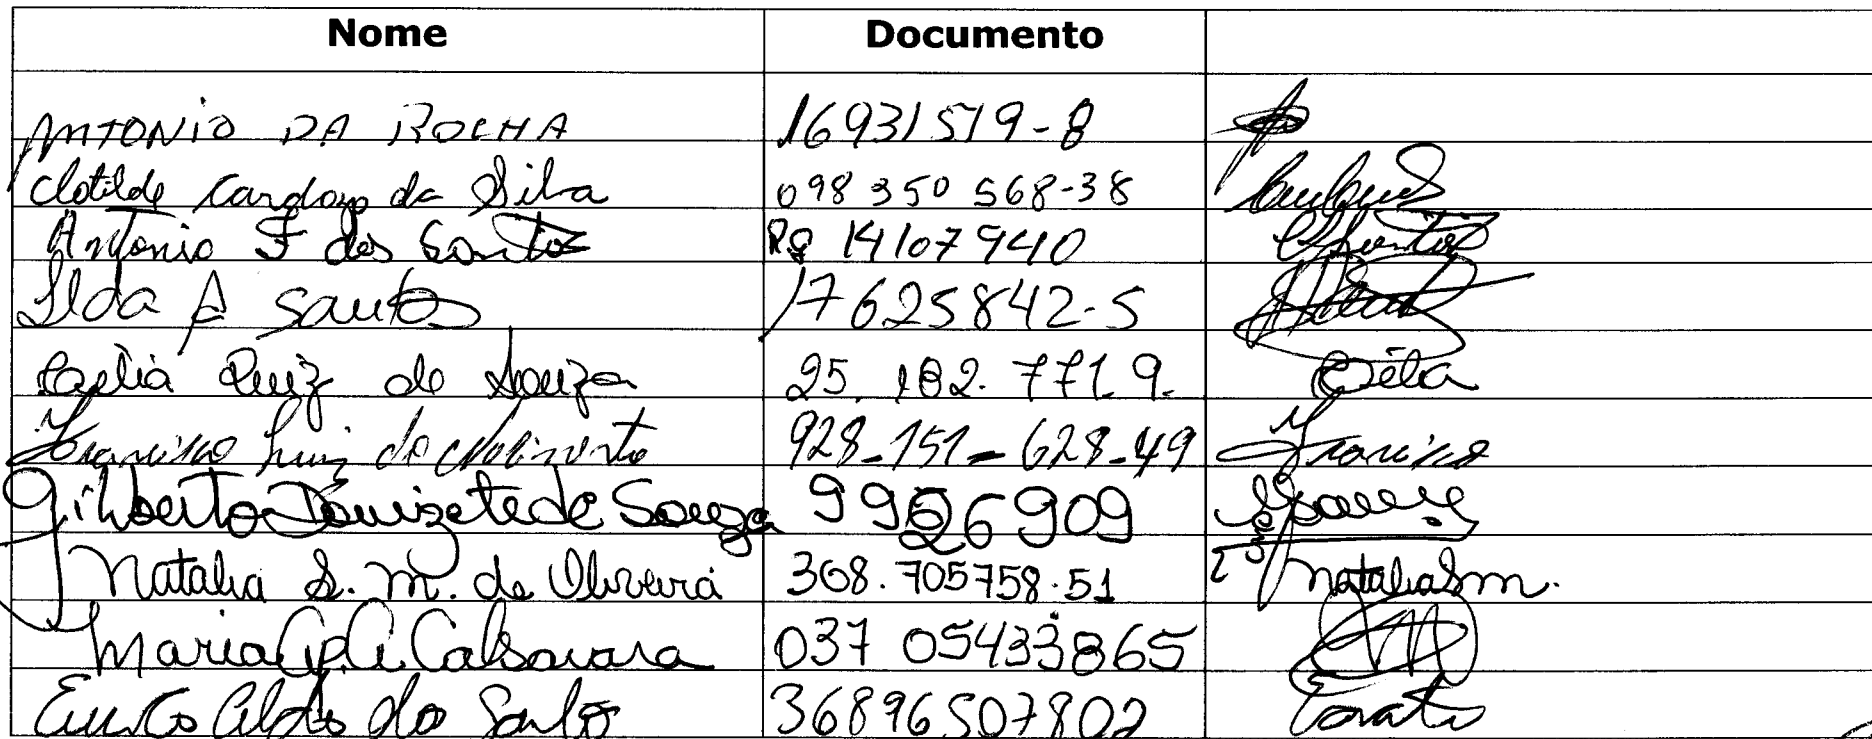 Nome Documento
ANTONIO DA ROCHA 16931519-8
Clotilde Cardozo da Silva 098 350 568-38
Antonio F dos Santos RG 14107940
Ilda A Santos 17625842-5
Luiz de Souza 25.182.771.9. Célia
Francisco Luiz do 928-151-628-49 Francisco
Gilberto Donizete de Souza 9926909
Natalia S. M. de Oliveira 368.705758.51 Natalia S m.
Maria Ap. A. Calsavara 037 05433865
do Santo 36896507802